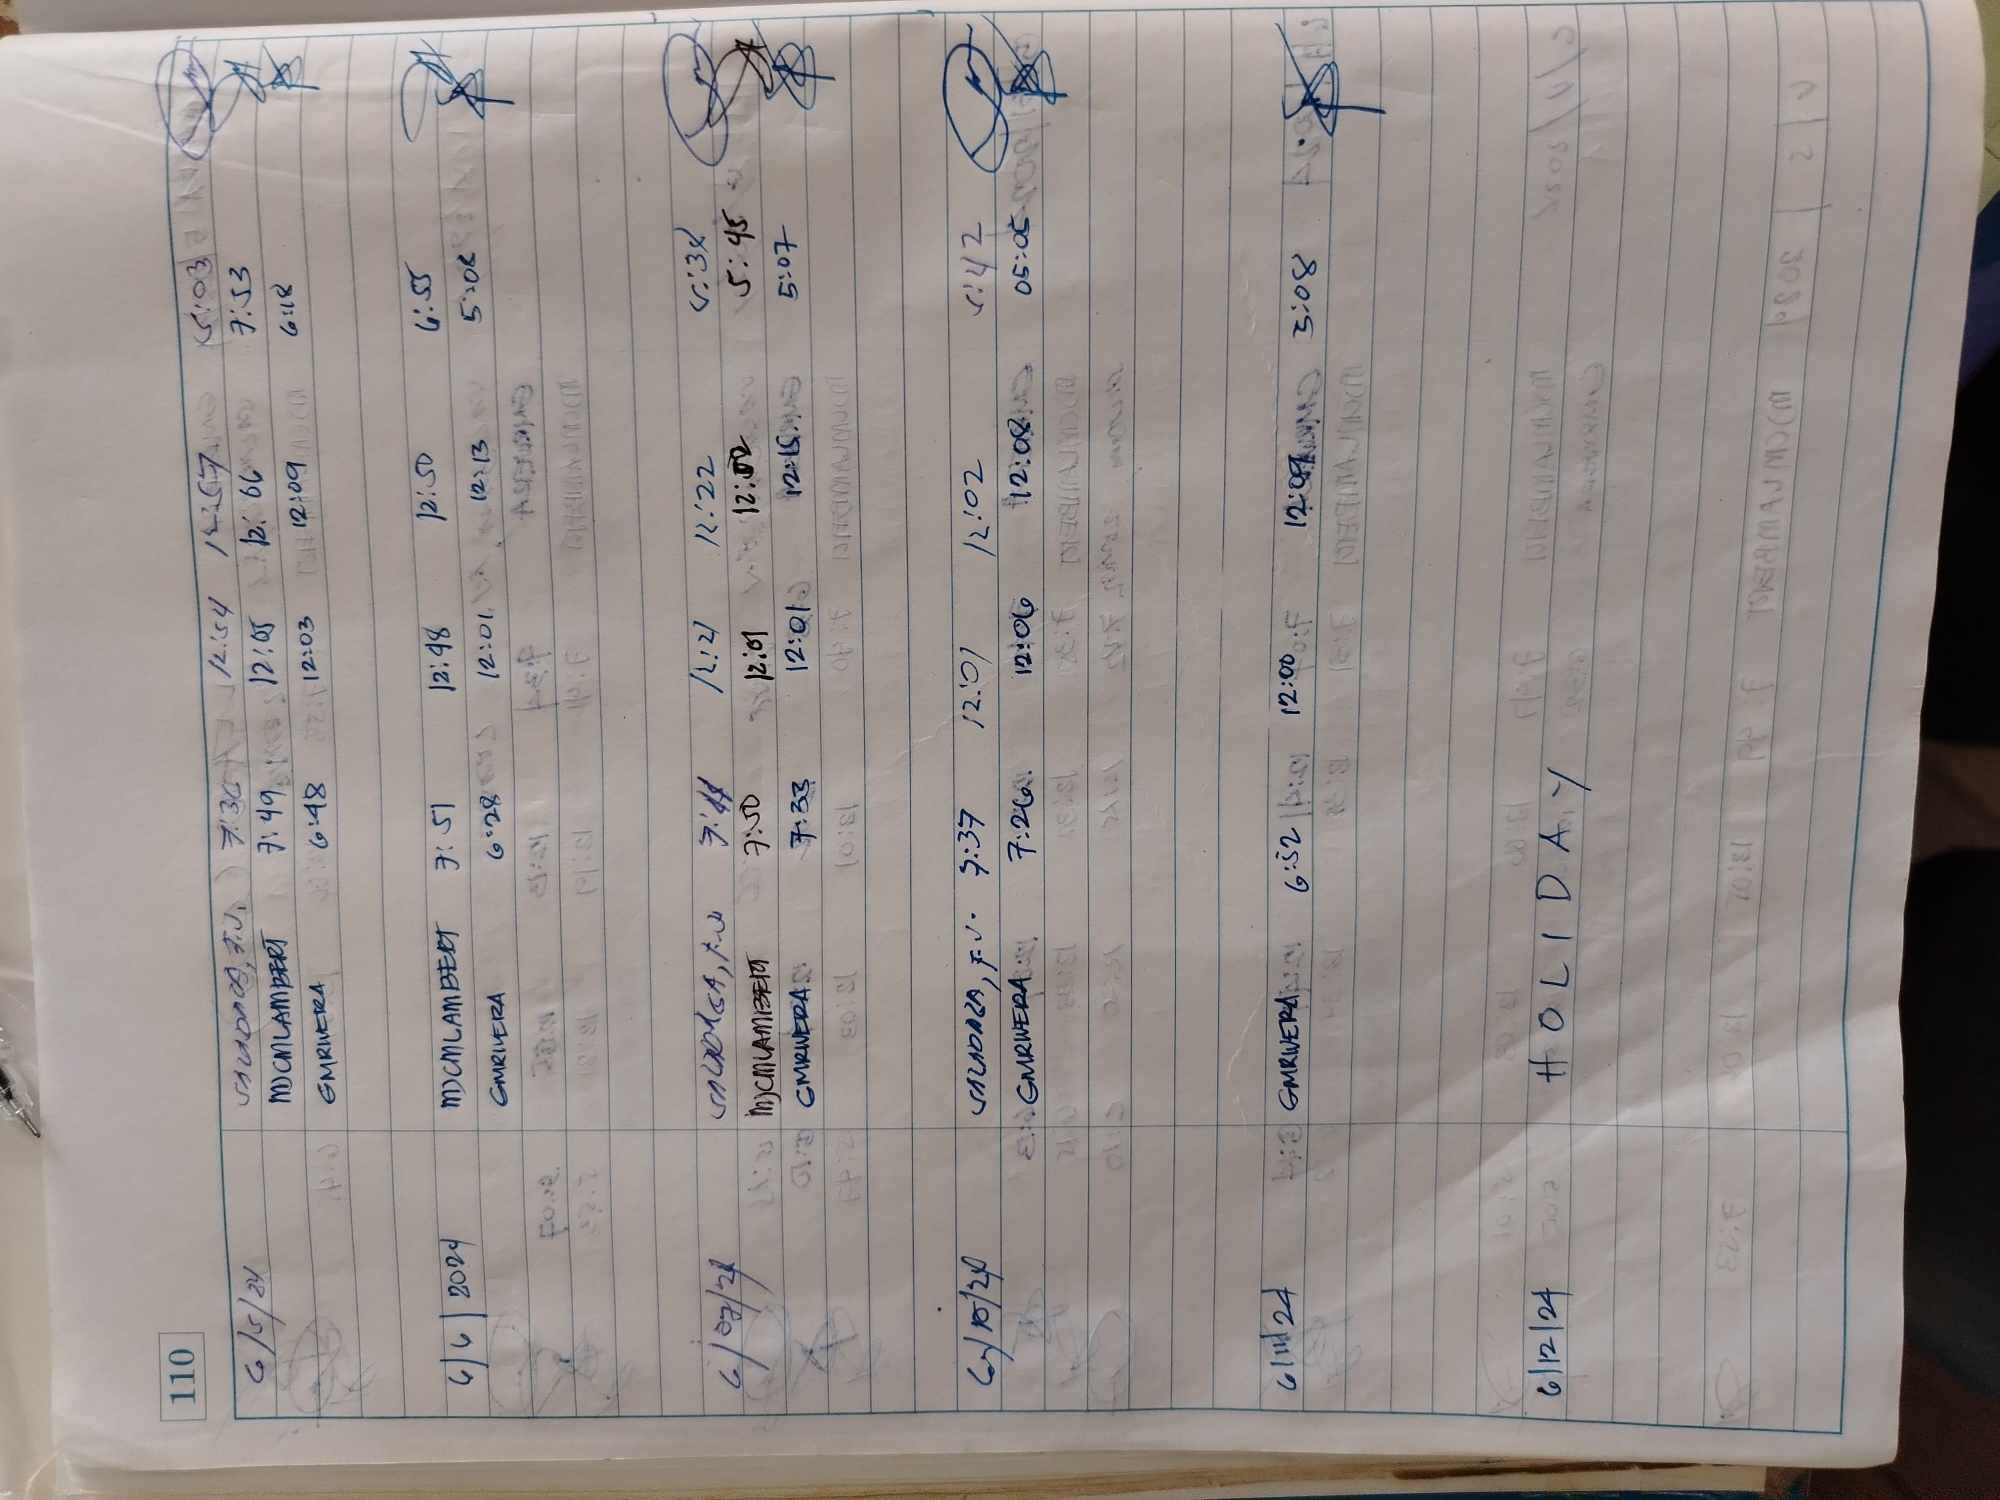 110
6/5/24 7:36 12:54 12:57 5:03
MJCMLAMBERT 7:49 12:05 12:06 7:53
GMRIVERA 6:48 12:03 12:09 6:18
6/6/2024 MJCMLAMBERT 7:51 12:48 12:50 6:55
GMRIVERA 6:28 12:01 12:13 5:08
6/07/24 12:21 12:22
MJCMLAMBERT 7:50 12:01 12:02 5:45
GMRIVERA 7:33 12:01 12:15 5:07
6/10/24 7:37 12:01 12:02 5:42
GMRIVERA 7:26 12:06 12:08 05:05
6/11/24 GMRIVERA 6:52 12:00 12:09 5:08
6/12/24 HOLIDAY